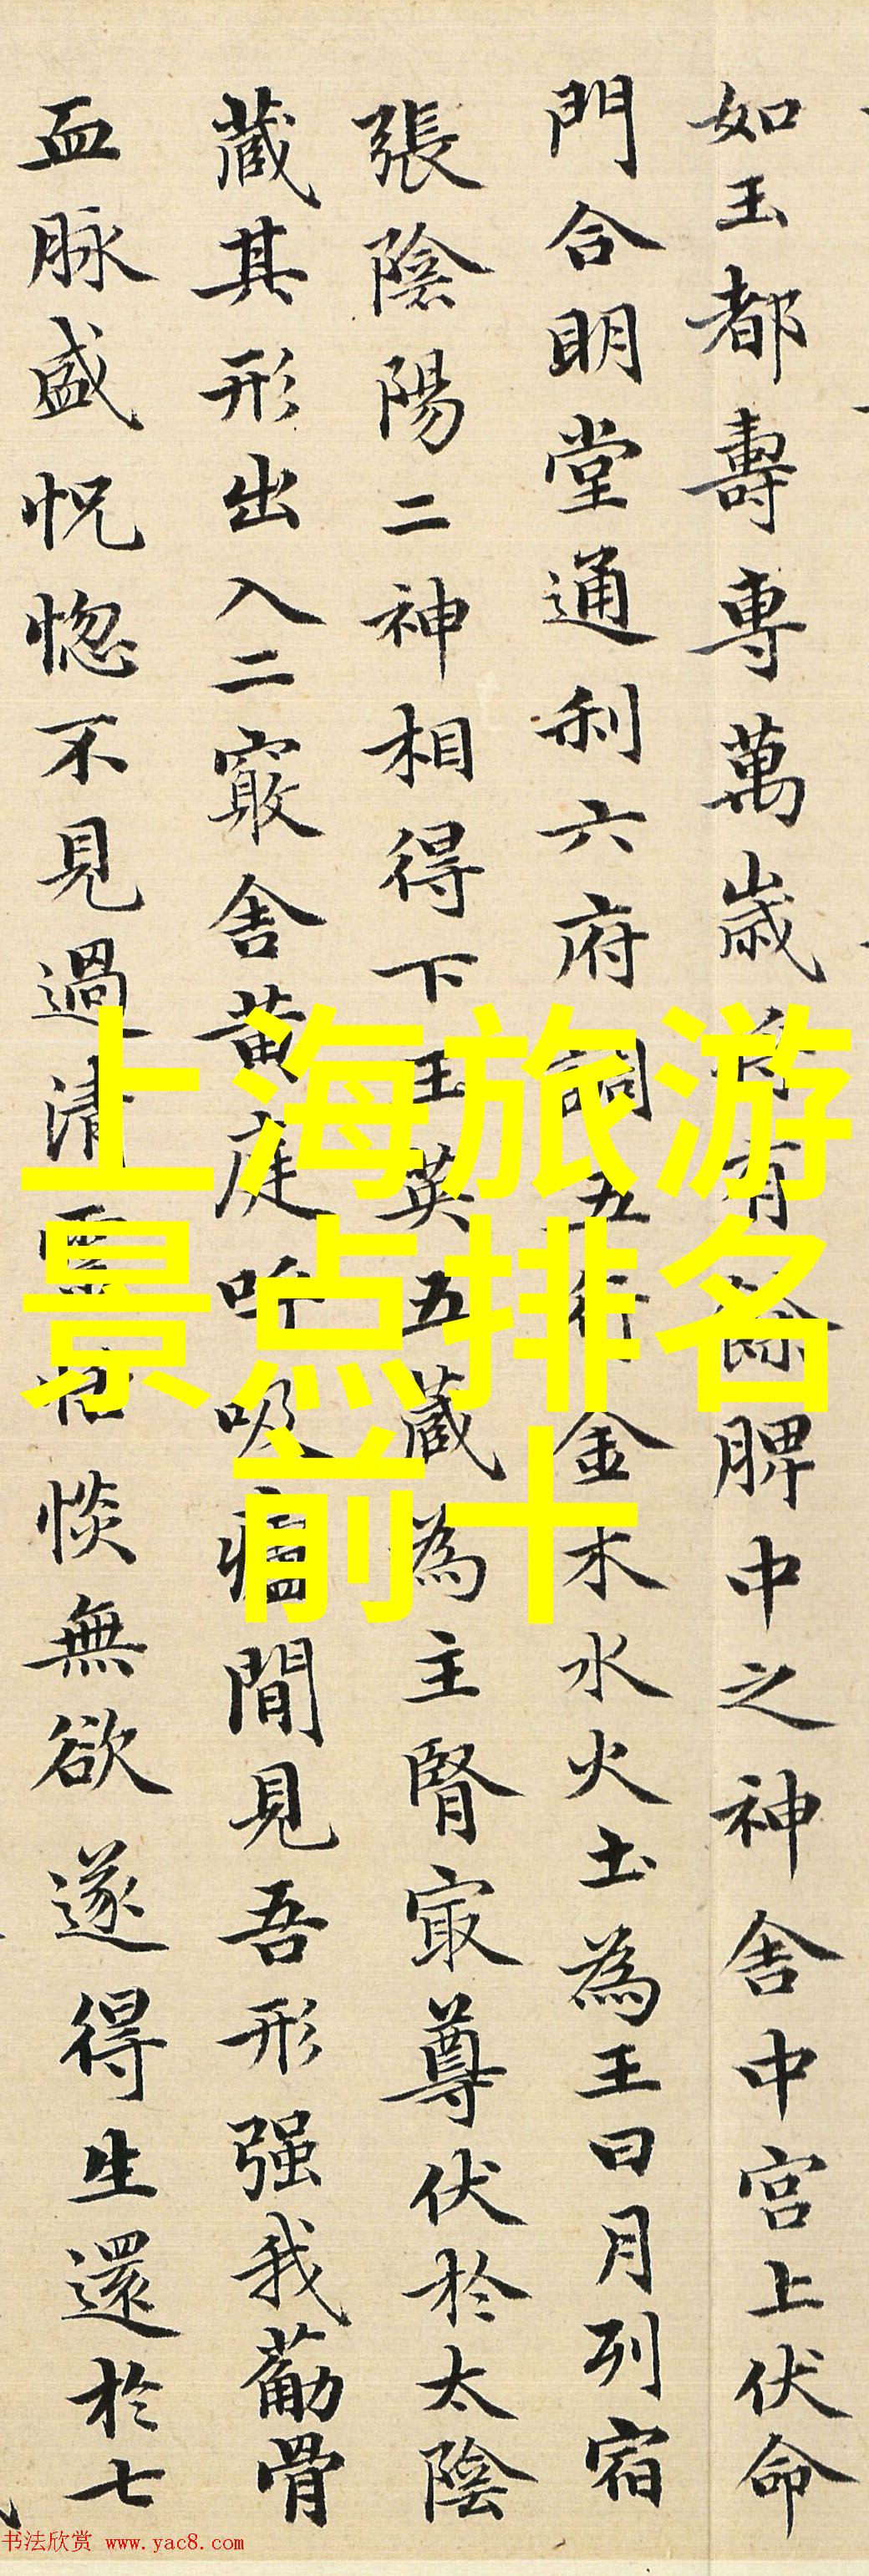 如玉都壽專萬歲有餘脾中之神舍中宮上伏命
門合明堂通利六府調五行金木水火土為王日月列宿
張陰陽二神相得下玉英五藏為主腎㝡尊伏於太陰
藏其形出入二竅舍黃庭呼吸廬間見吾形强我葍骨
血脉盛怳惚不見過清靈恬惔無欲遂得生還於七
上海旅游
景点排名
前十
书法欣赏 www.yac8.com